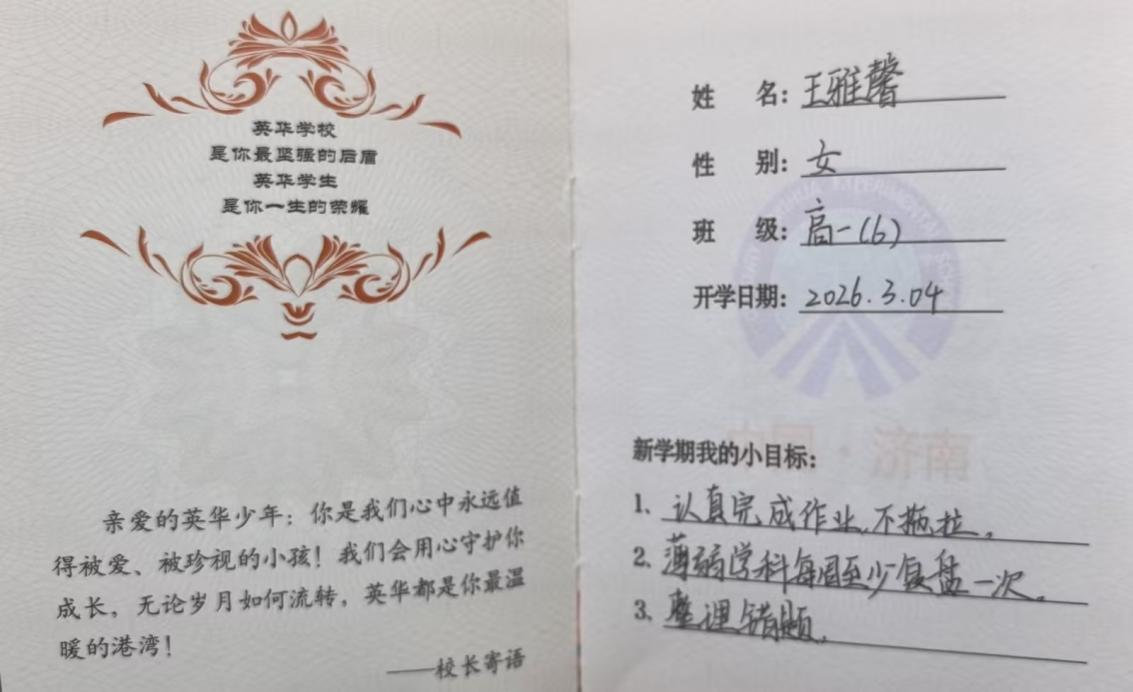 英华学校
是你最坚强的后盾
英华学生
是你一生的荣耀
亲爱的英华少年：你是我们心中永远值
得被爱、被珍视的小孩！我们会用心守护你
成长，无论岁月如何流转，英华都是你最温
暖的港湾！
——校长寄语
姓 名：王雅馨
性 别：女
班 级：高一(6)
开学日期：2026.3.04
中国·济南
新学期我的小目标：
1. 认真完成作业,不拖拉。
2. 薄弱学科每周至少复盘一次。
3. 整理错题。